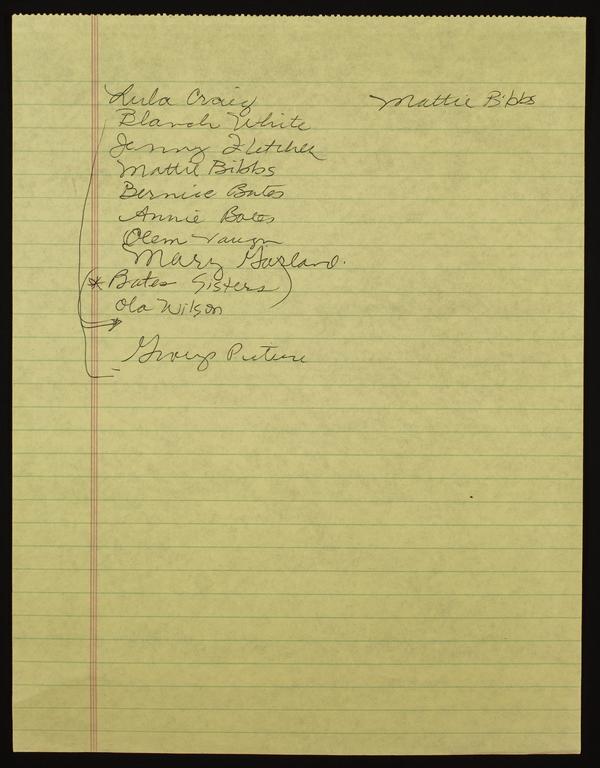 Lula Craig
Mattie Bibbs
Blanch White
Jenny Fletcher
Mattie Bibbs
Bernice Bates
Annie Bates
Clem Vaugn
Mary Garland.
(* Bates Sisters)
Ola Wilson
Group Picture